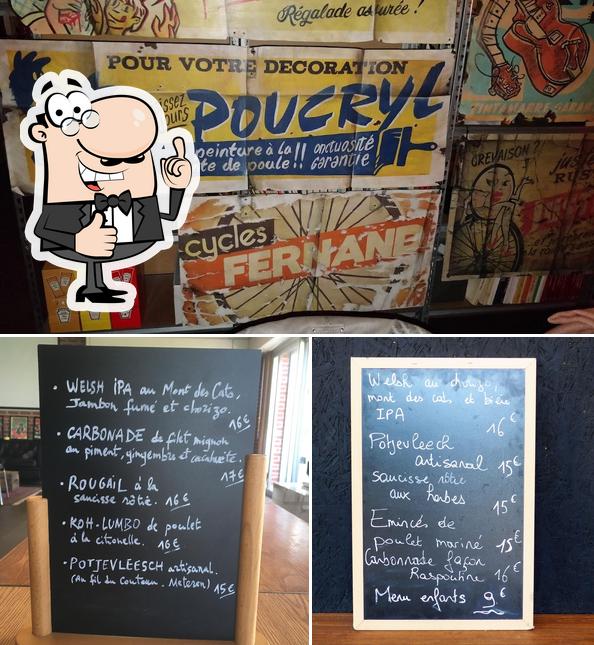 Régalade assurée!
POUR VOTRE DECORATION
POUCRYL
peinture à la !! onctuosité
de poule!! garantie
TINTAMARRE GARAGE
CREVAISON?
cycles
FERNANE
• WELSH IPA au Mont des Cats,
Jambon fumé et chorizo.
16€
• CARBONADE de filet mignon
au piment, gingembre et cacahuète.
17€
• ROUGAIL à la
saucisse rôtie. 16€
• KOH-LUMBO de poulet
à la citronelle. 16€
• POTJEVLEESCH artisanal.
(Au fil du Couteau. Meteren) 15€
Welsh au chorizo,
mont des cats et bière
IPA 16€
Potjevleech
artisanal 15€
saucisse rôtie
aux herbes 15€
Emincés de
poulet mariné 15€
Carbonnade façon
Raspoutine 16€
Menu enfants 9€